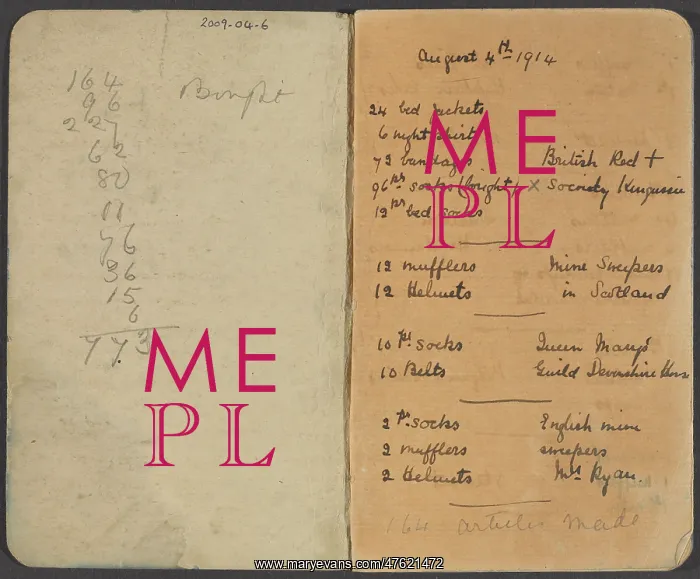 2009-04-6
164
96
227
62
80
11
76
36
15
6
773
Bought
August 4th 1914
24 bed jackets
6 night shirts
73 bandages British Red +
96 prs socks (bought) x Society Kingussie
12 prs bed socks
12 mufflers Mine Sweepers
12 Helmets in Scotland
10 prs socks Queen Mary's
10 Belts Guild Devonshire House
2 prs socks English mine
2 mufflers sweepers
2 Helmets Mrs Ryan.
164 articles made
ME
PL
ME
PL
www.maryevans.com/47621472